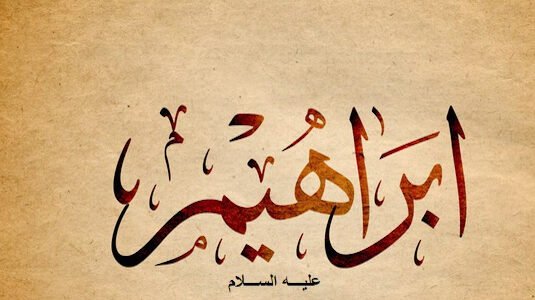 ابَراهيم
عليه السلام